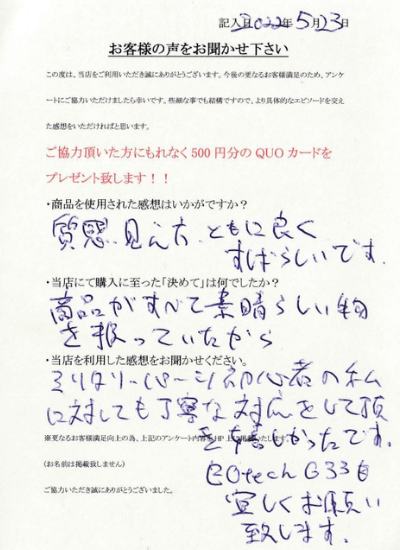 記入日 2022年5月23日
お客様の声をお聞かせ下さい
この度は、当店をご利用いただき誠にありがとうございます。今後の更なるお客様満足のため、アンケ
ートにご協力いただけましたら幸いです。些細な事でも結構ですので、より具体的なエピソードを交え
た感想をいただければと思います。
ご協力頂いた方にもれなく500円分のQUOカードを
プレゼント致します！！
・商品を使用された感想はいかがですか？
質感、見え方、ともに良く
すばらしいです。
・当店にて購入に至った「決めて」は何でしたか？
商品がすべて素晴らしい物
を扱っていたから
・当店を利用した感想をお聞かせください。
ミリタリーパーツ初心者の私
に対しても丁寧な対応をして頂
き嬉しかったです。
※更なるお客様満足向上の為、上記のアンケート内容をHP上に掲載いたします。
(お名前は掲載致しません)
EOtech G33も
ご協力いただき誠にありがとうございました。
宜しくお願い
致します。